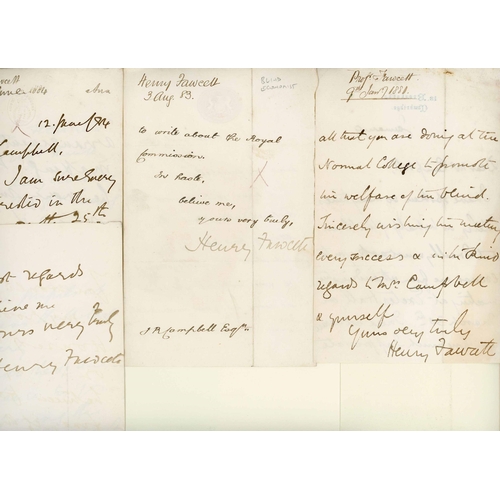 Henry Fawcett
3 Aug. 83.
BLIND
ECONOMIST
to write about the Royal
Commission.
In haste,
believe me,
yours very truly,
Henry Fawcett
J R Campbell Esqre
Profr Fawcett
9th Jany 1880.
all that you are doing at the
Normal College to promote
the welfare of the blind.
Sincerely wishing the meeting
every success & with kind
regards to Mrs Campbell
& yourself
Yours very truly
Henry Fawcett
Campbell,
I am sure
in the
25th
regards
me
very truly
Henry Fawcett